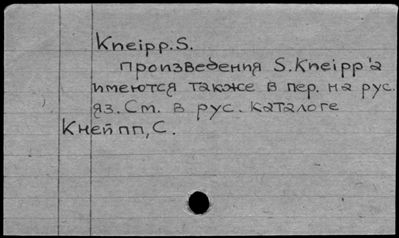 Kneipp. S.
произведения S. Kneipp'а
имеются также в пер. на рус.
яз. См. в рус. каталоге
Кнейпп, С.